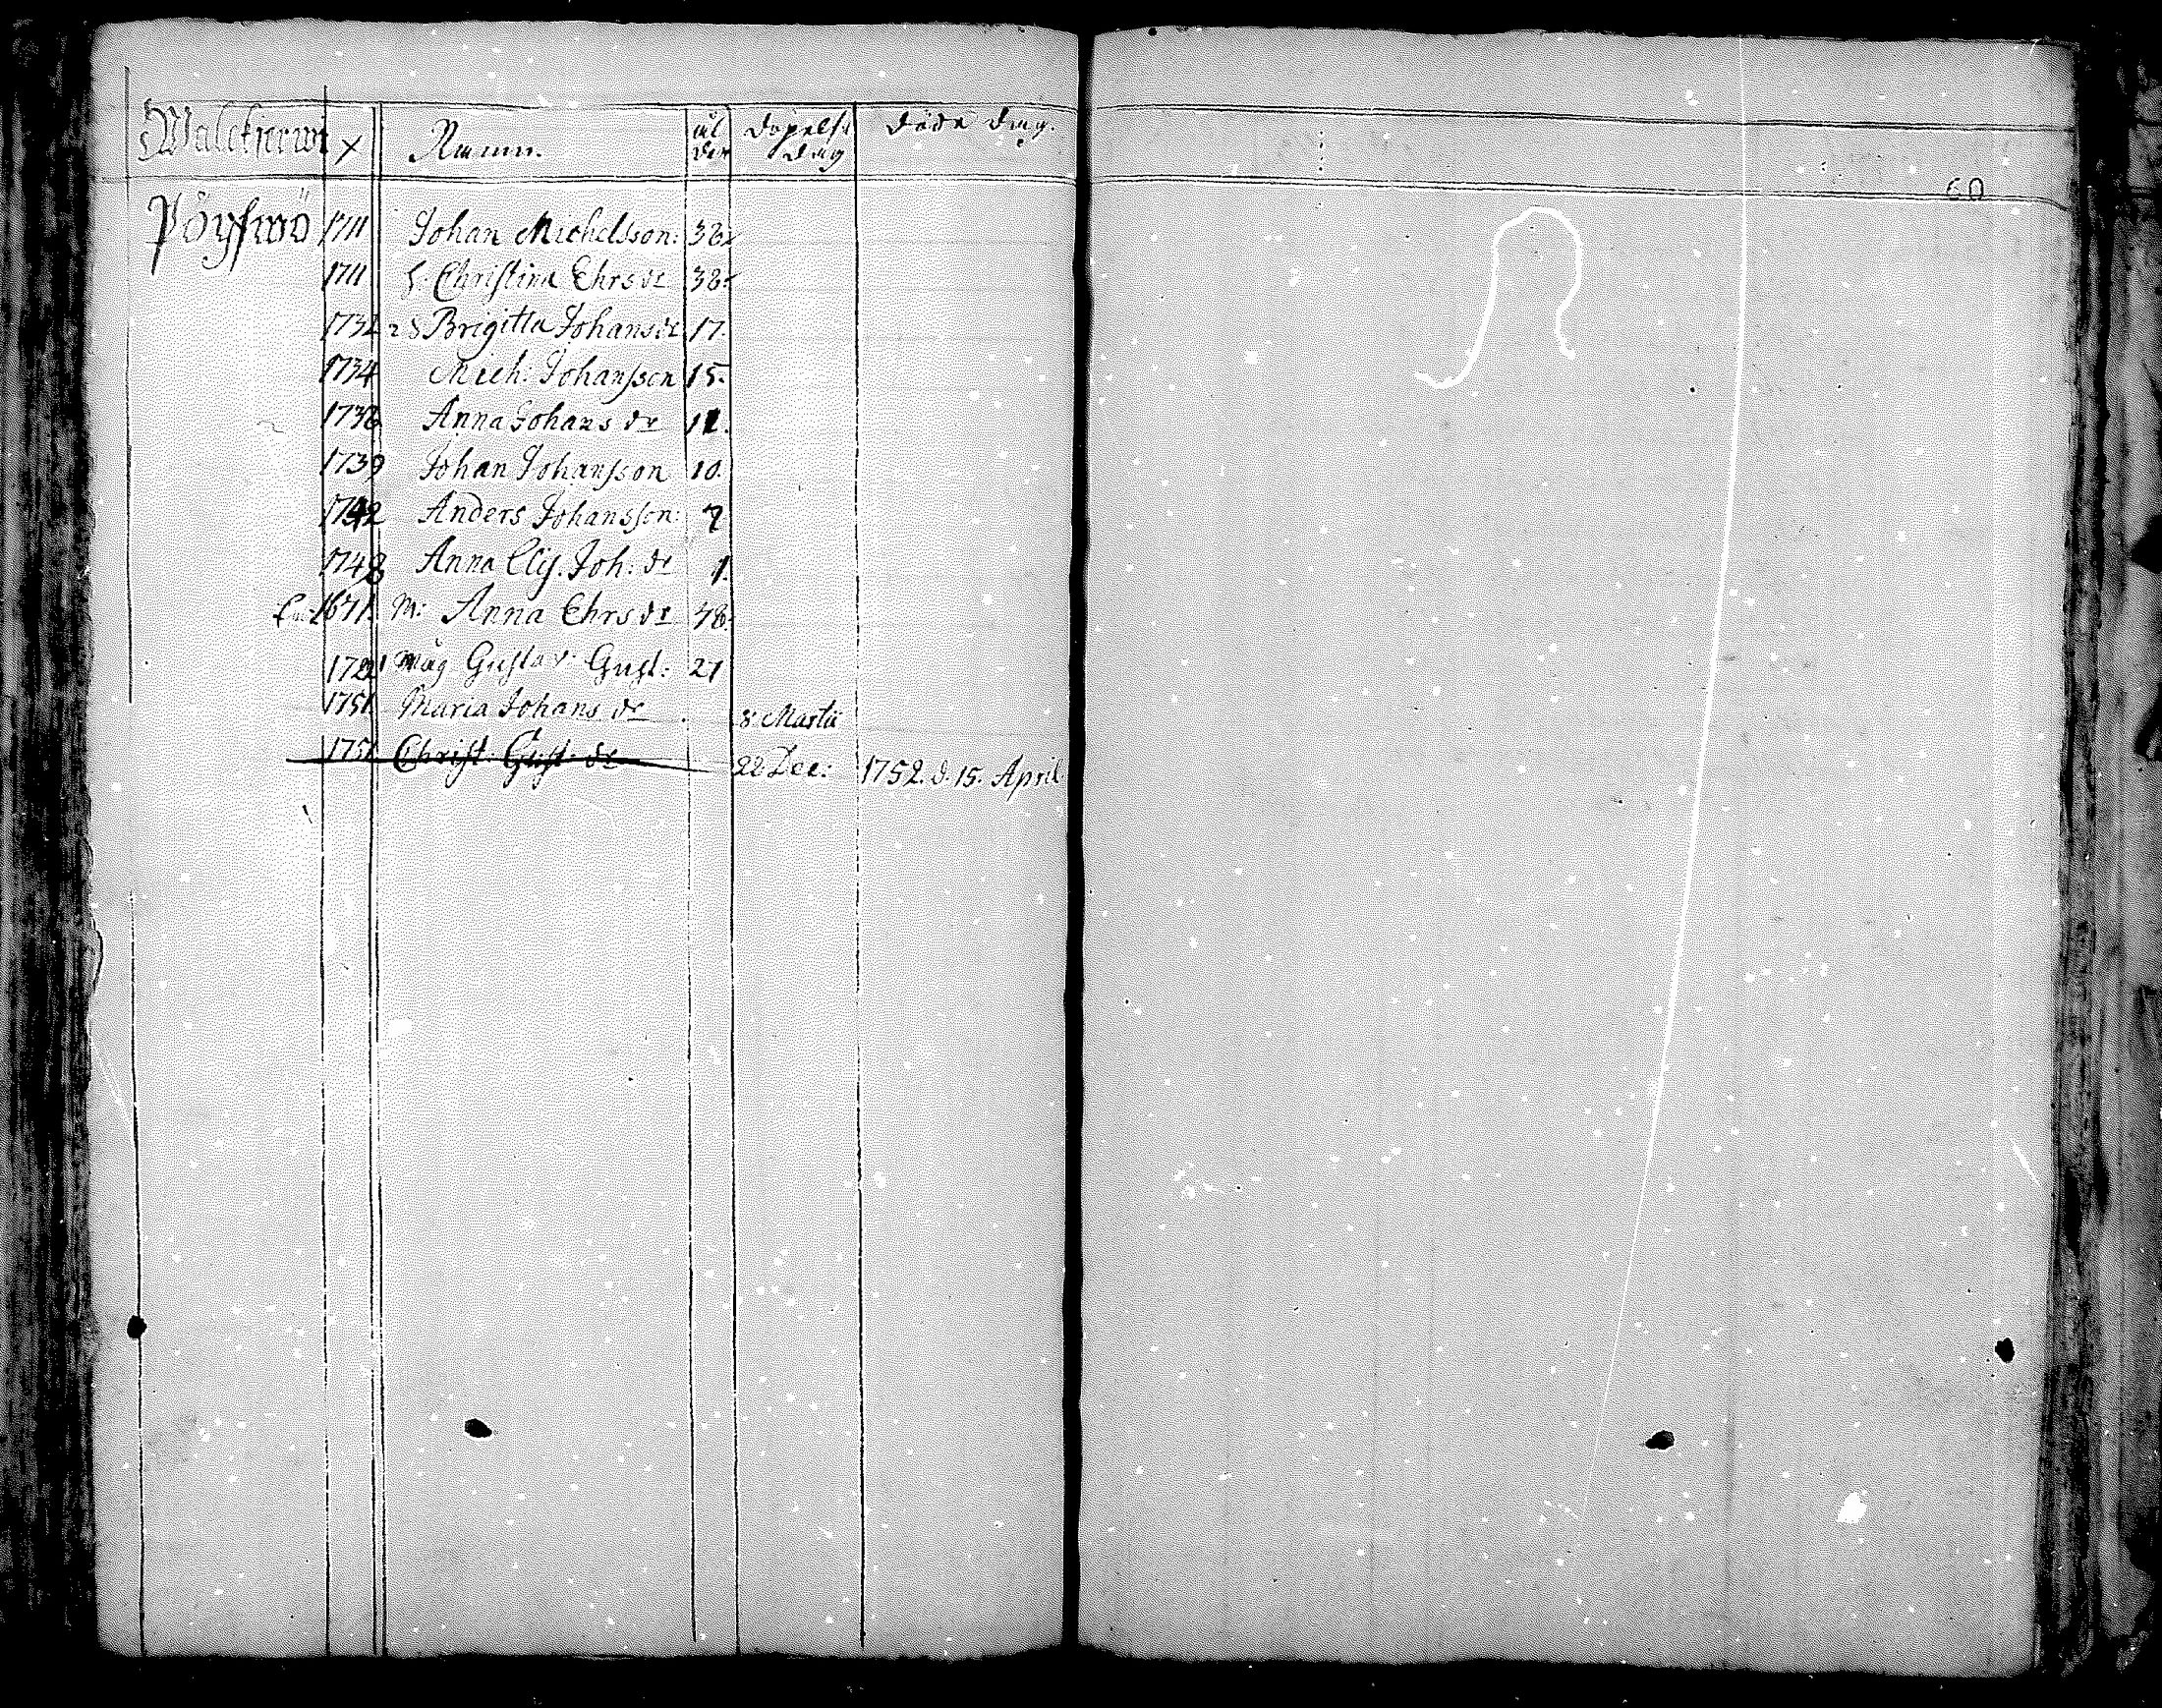 Walckjerwi x Namn. ål der Döpelse dag Döde dag.
60
Pöyswö 1711 Johan Michelsson: 38.
1711 h. Christina Ehrsdr 38.
1732 Brigitta Johansdr 17.
1734 Mich: Johansson 15.
1738 Anna Johans dr 11.
1739 Johan Johansson 10.
1742 Anders Johansson: 7
1748 Anna Elis. Joh: dr 1.
1671. M: Anna Ehrsdr 78.
1722 måg Gustav Gust: 27
1751 Maria Johans dr 8 Martii
1751 Christ: Gust: dr 22 Dec: 1752. d. 15. April